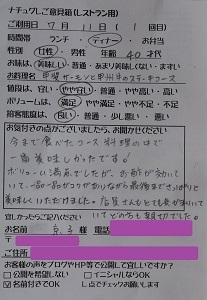 ナチュグレご意見箱(レストラン用)
ご利用日 7月11日(1回目)
時間帯 ランチ・ディナー・お弁当
性別 男性・女性 年齢 40才代
お味は、美味しい・普通・あまり美味しくない・まずい
お料理名 甲斐サーモンと甲州牛のステーキコース
値段は、安い・やや安い・普通・やや高い・高い
ボリュームは、満足・やや満足・やや不足・不足
接客態度は、良い・普通・少し悪い・悪い
お気付きの点がございましたら、お聞かせください
今まで食べたコース料理の中で
一番美味しかったです!
ボリューム満点でしたが、お酢が効いて
いて、一品一品がコクがありながら最後までさっぱりと
美味しくいただけました。店長さんもとても良くがまんして
いてどの方も親切でした。
宜しかったらご記入ください
お名前 京子 様 電話
〒
ご住所
お客様の声をブログやHP等で公開して宜しいですか?
□公開を希望しない □イニシャルならOK
☑お名前付きでOK し点でチェックお願いします